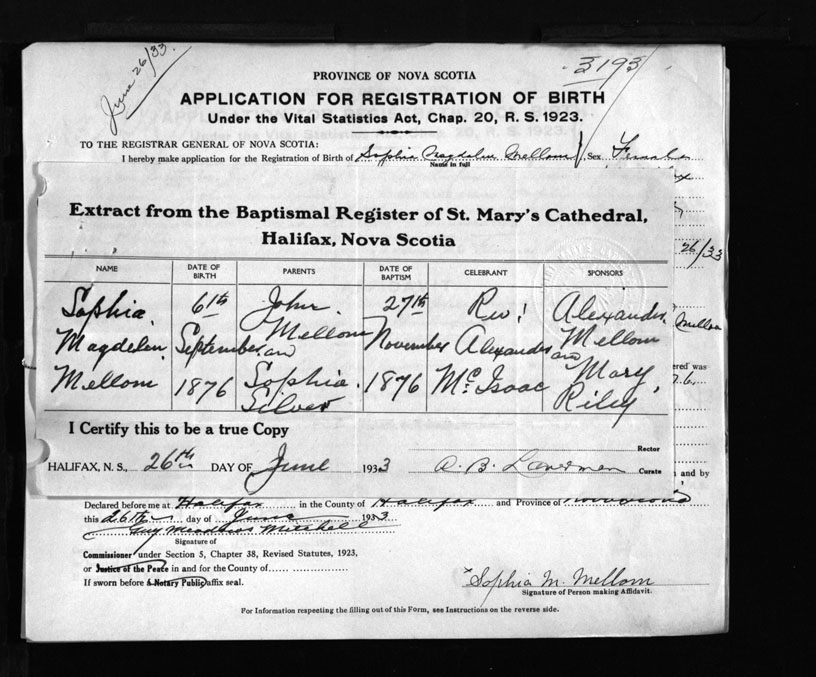 June 26/33.
3193
PROVINCE OF NOVA SCOTIA
APPLICATION FOR REGISTRATION OF BIRTH
Under the Vital Statistics Act, Chap. 20, R. S. 1923.
TO THE REGISTRAR GENERAL OF NOVA SCOTIA:
I hereby make application for the Registration of Birth of Sophia Magdelen Mellom Sex Female
Name in full
26/33
Mellom
ered was
and by
Extract from the Baptismal Register of St. Mary's Cathedral,
Halifax, Nova Scotia
NAME DATE OF BIRTH PARENTS DATE OF BAPTISM CELEBRANT SPONSORS
Sophia 6th John 27th Rev. Alexander
Magdelen September Mellom and November Alexander Mellom and
Mellom 1876 Sophia 1876 McIsaac Mary
Silver Riley
I Certify this to be a true Copy
Rector
HALIFAX, N. S., 26th DAY OF June 1933 A. B. Curate
Declared before me at Halifax in the County of Halifax and Province of
this 26th day of June 1933
Guy Mitchell
Signature of
Commissioner under Section 5, Chapter 38, Revised Statutes, 1923,
or Justice of the Peace in and for the County of
If sworn before a Notary Public, affix seal.
Sophia M. Mellom
Signature of Person making Affidavit.
For Information respecting the filling out of this Form, see Instructions on the reverse side.